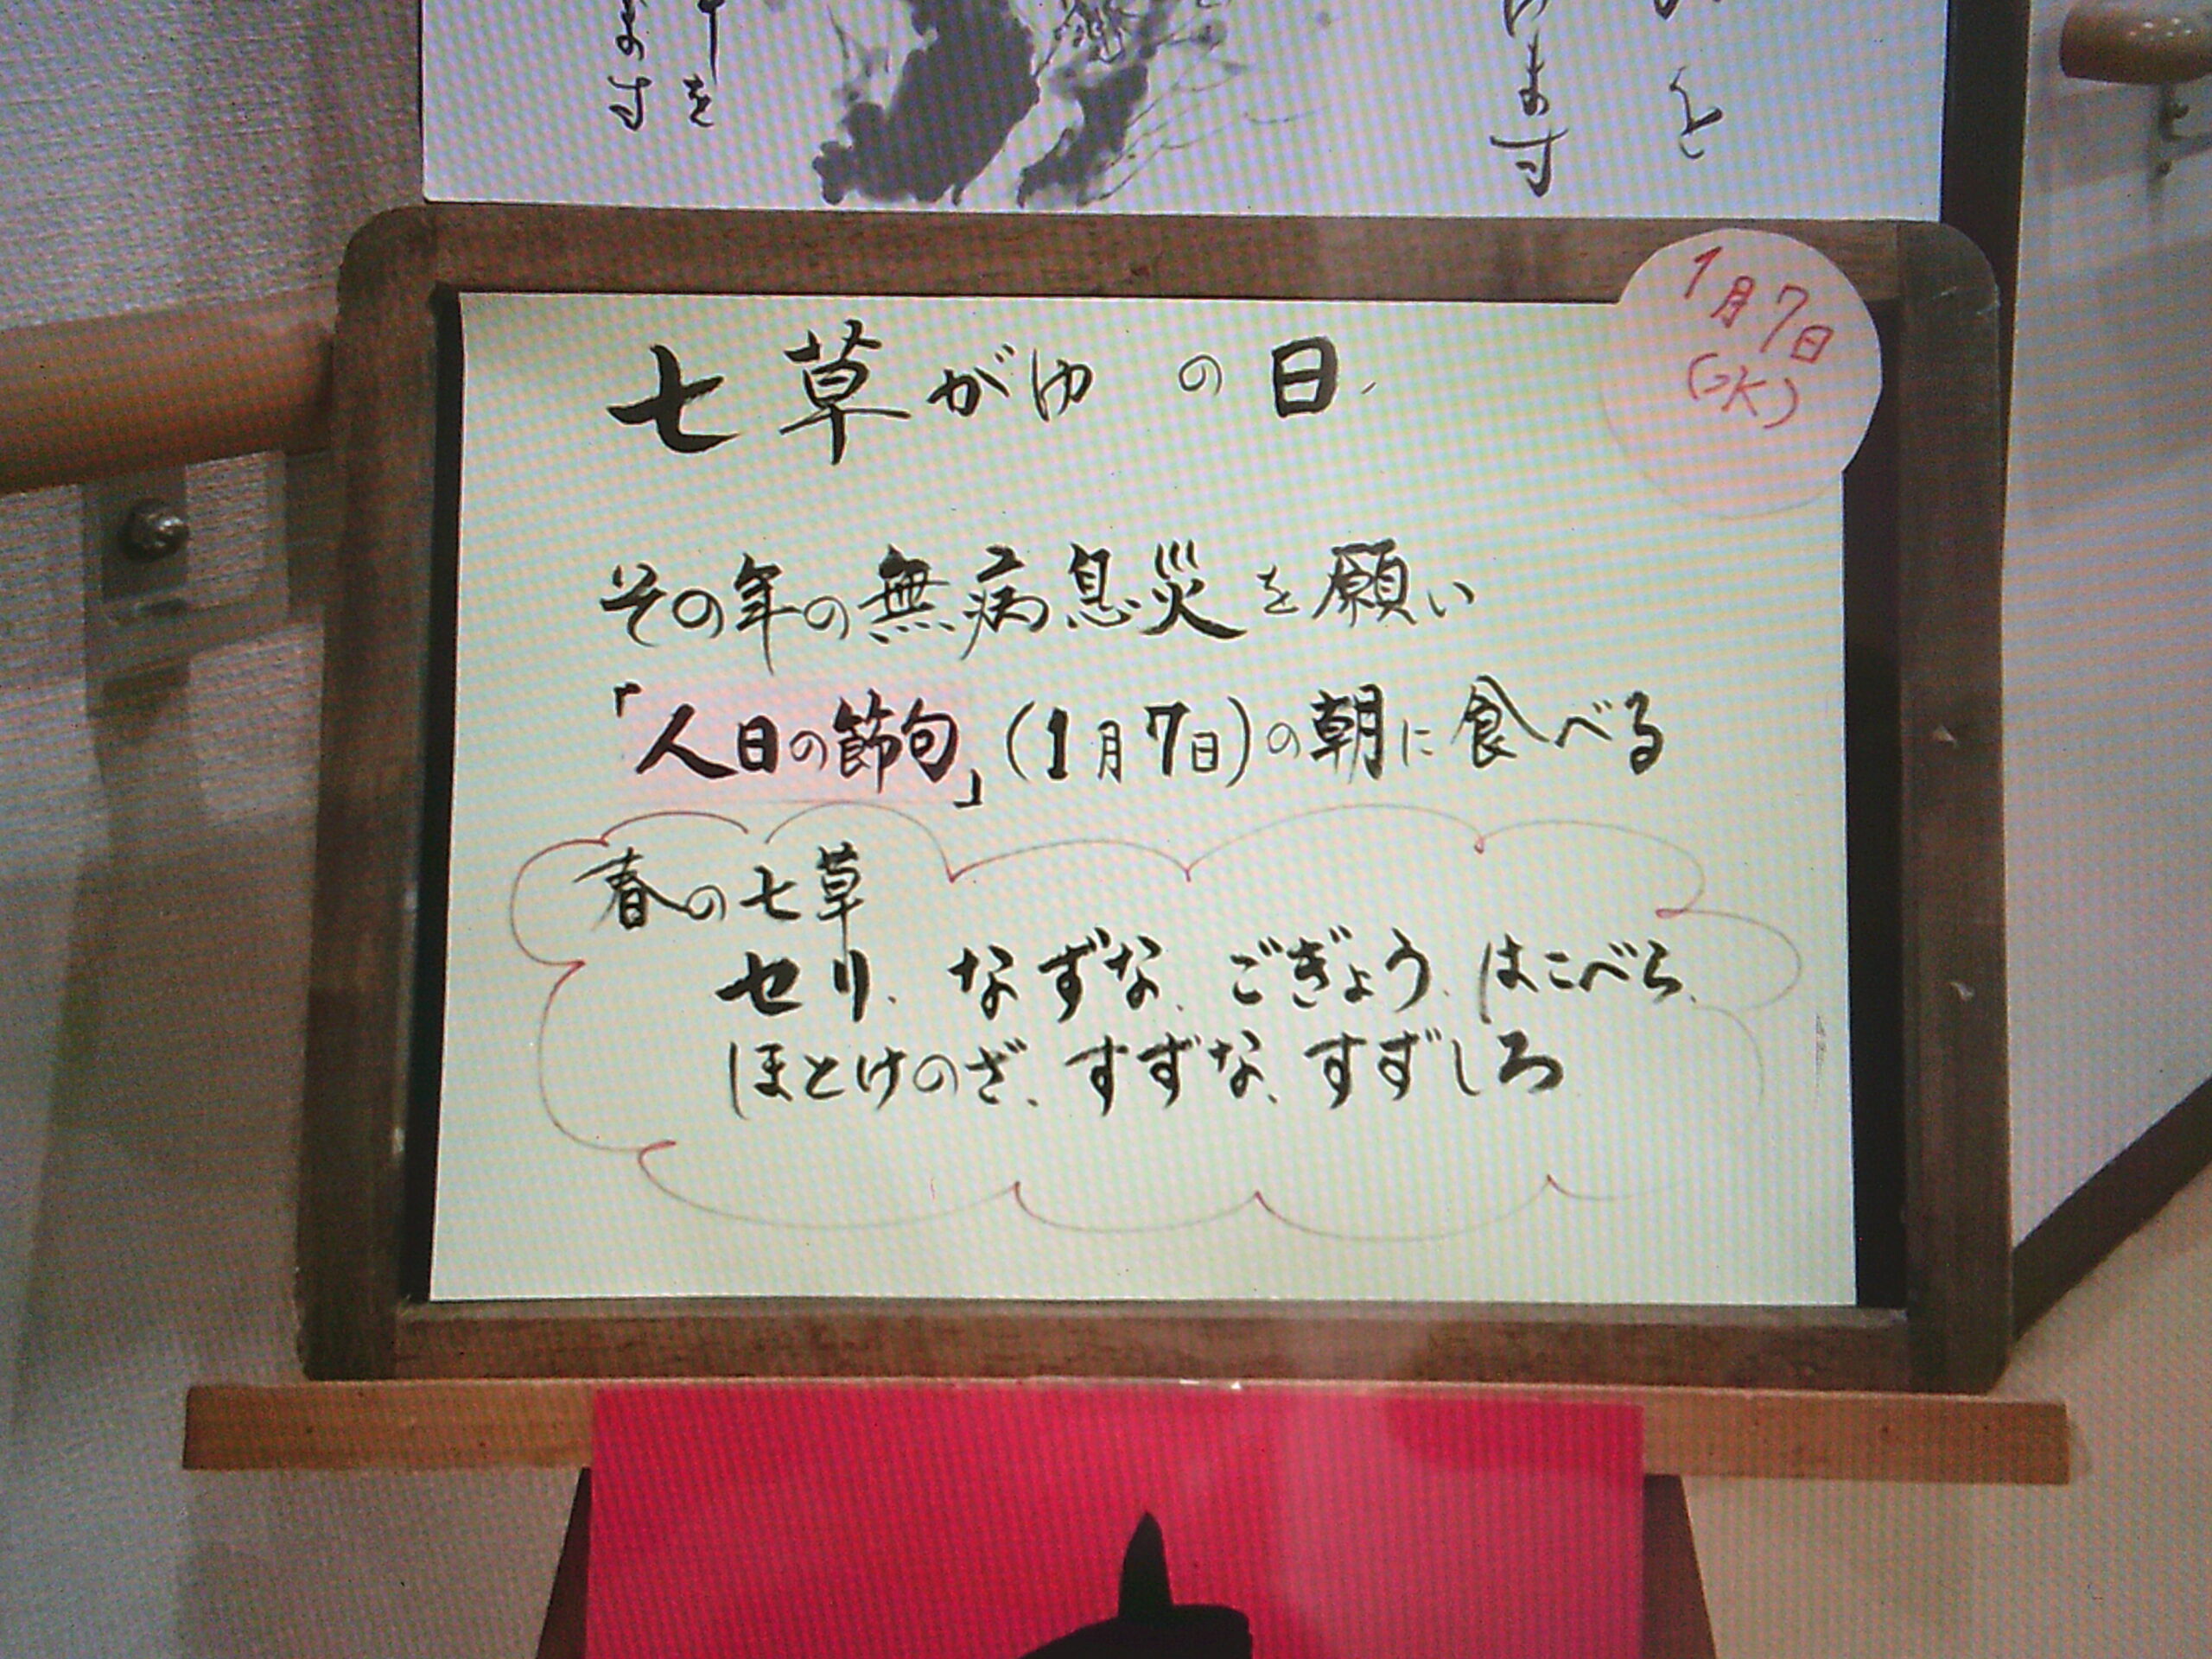 を
ます
1月7日
(水)
七草がゆの日
その年の無病息災を願い
「人日の節句」(1月7日)の朝に食べる
春の七草
セリ、なずな、ごぎょう、はこべら、
ほとけのざ、すずな、すずしろ